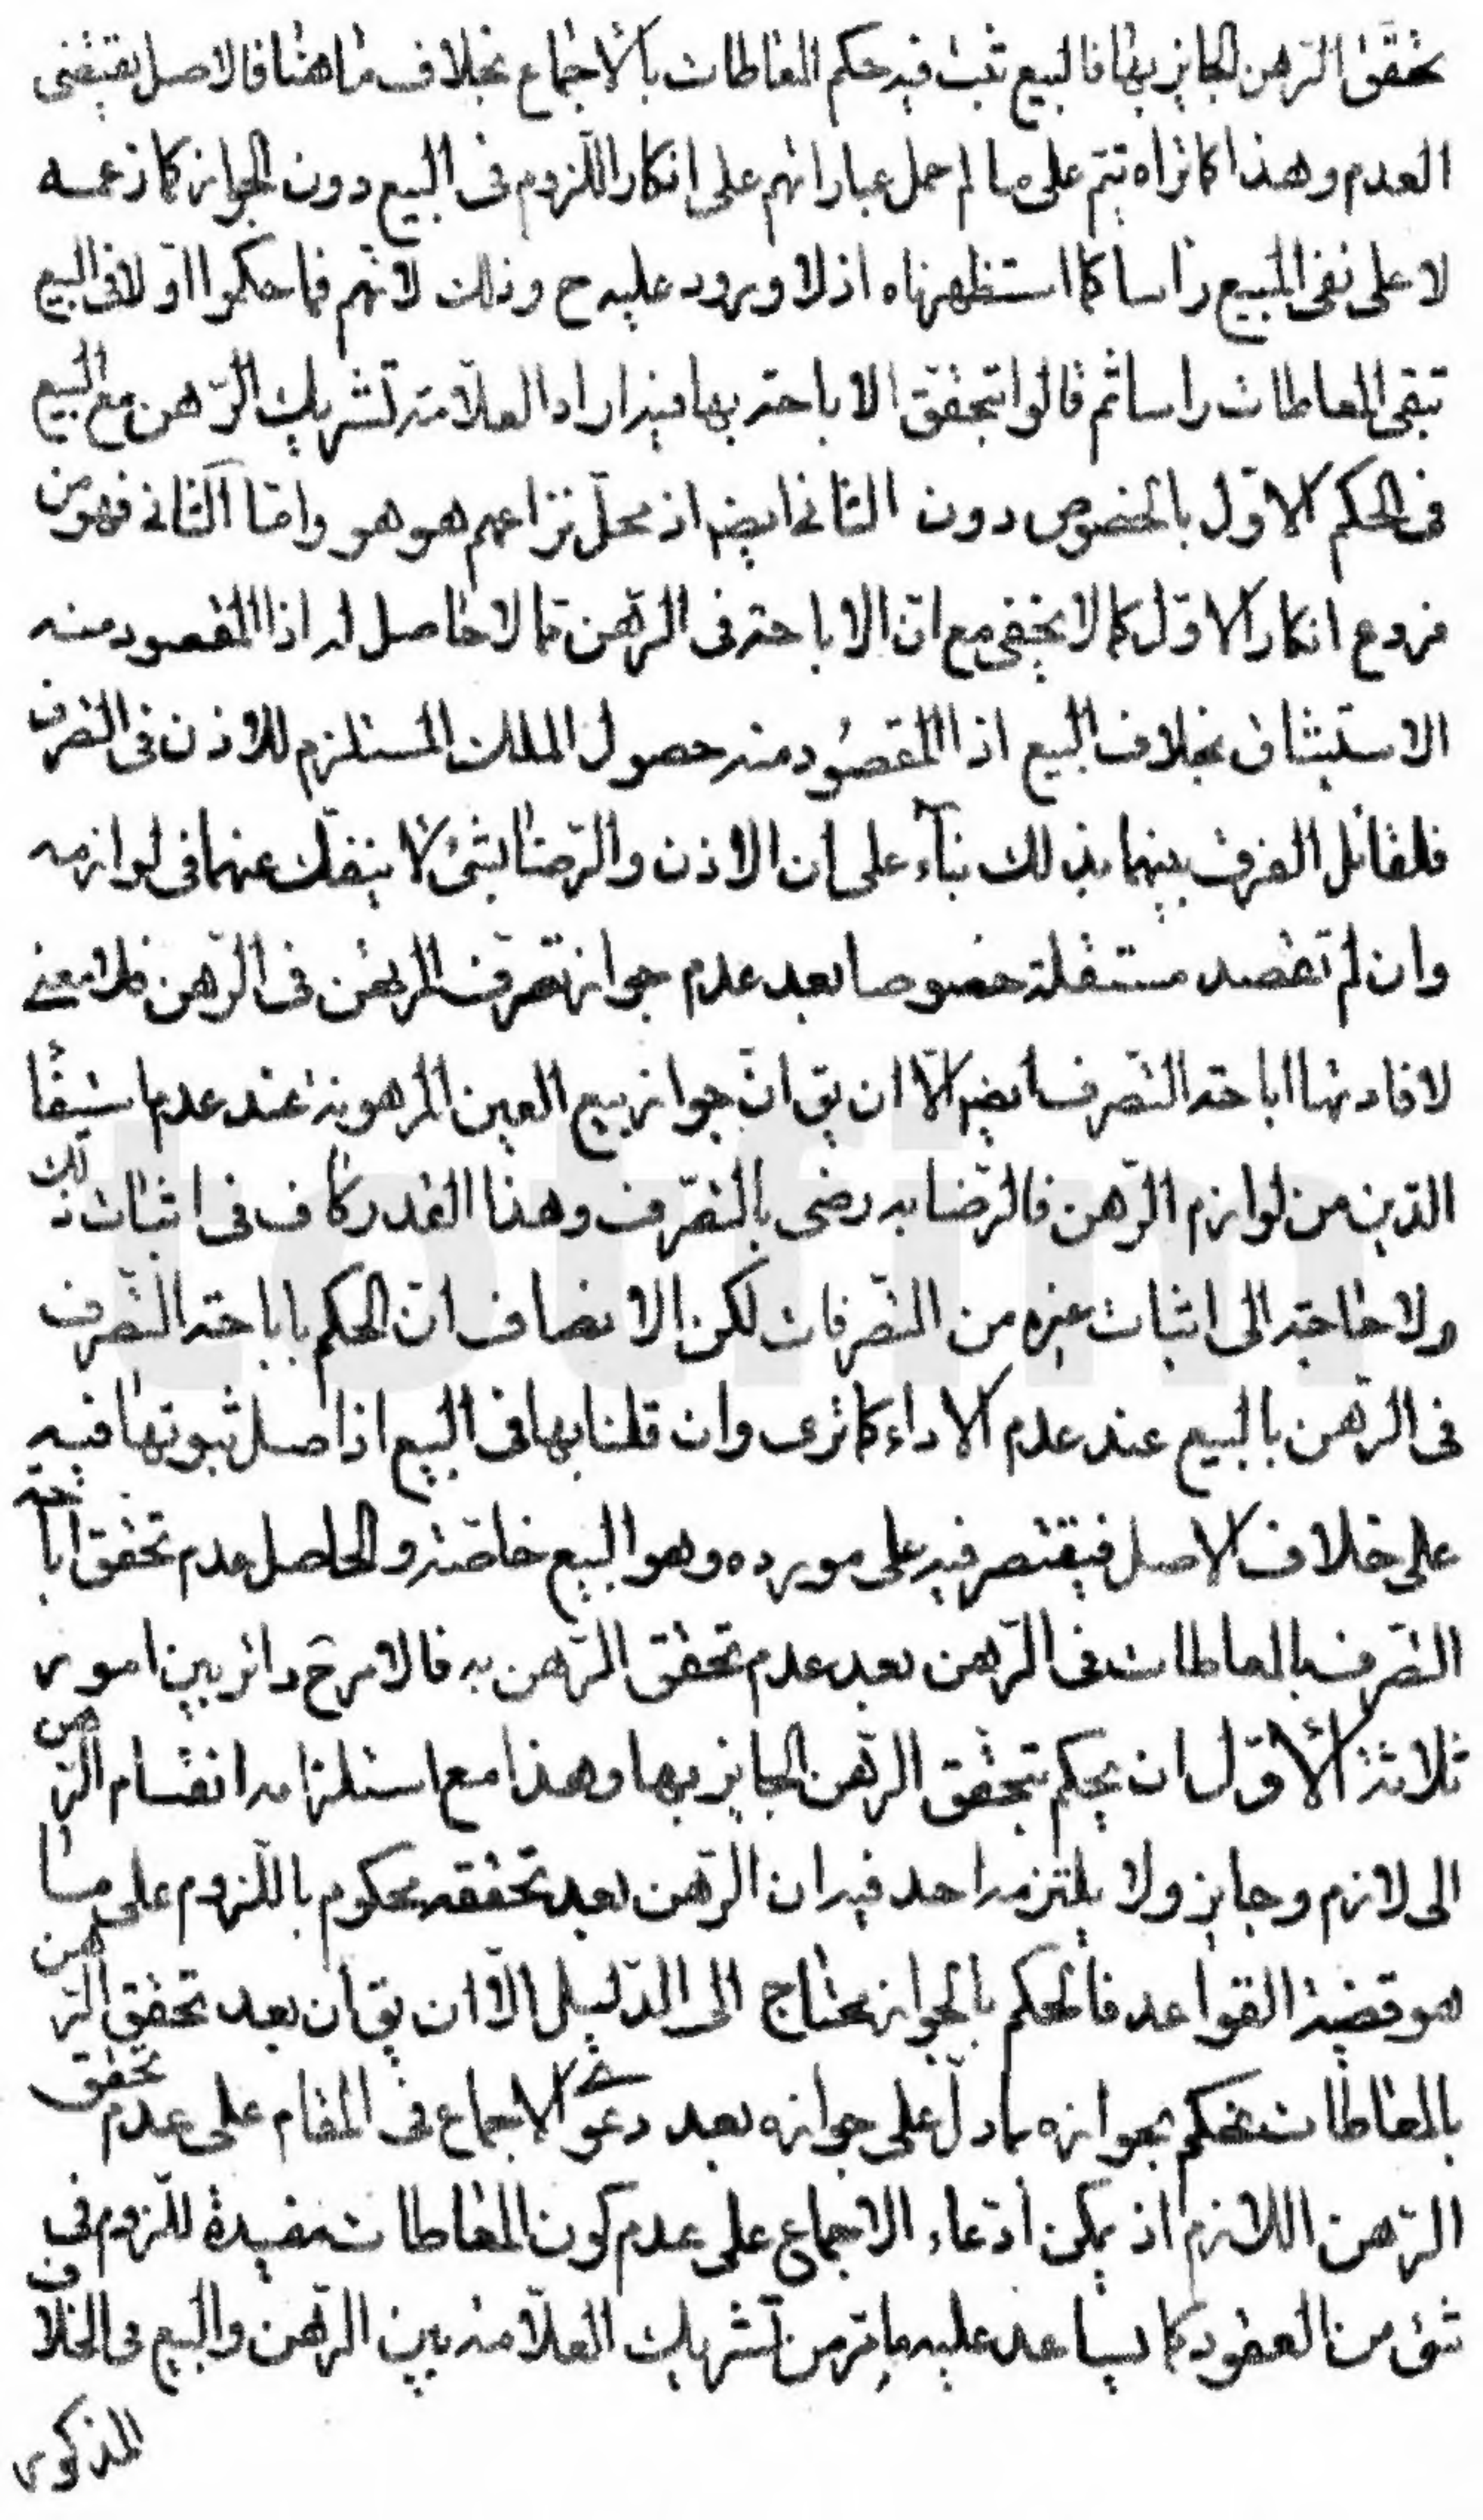 تحقق الرّهن الجايز بها فالبيع ثبت فيه حكم المعاطات بالأجماع بخلاف ما هنا فالاصل يقتضى
العدم وهذا كما تراه تيتم على ما لم احمل عباراتهم على انكار اللّزوم فى البيع دون الجواز كما زعمه
لا على نفى البيع راسا كما استظهرناه اذ لا ورود عليه ح وذلك لانّهم فما حكموا اوّلا فى البيع
تبقى المعاطات راسا ثم قالوا تبحقق الاباحة بها فيه اراد العلّامة تشريك الرّهن مع البيع
فى الحكم الاوّل بالخصوص دون الثانى ايضا اذ محلّ نزاعهم هو هو وامّا الثانى فهو من
فروع انكار الاوّل كما لا يخفى مع انّ الاباحة فى الرّهن ممّا لا حاصل له اذ المقصود منه
الاستيثاق بخلاف البيع اذ المقصود منه حصول الملك المستلزم للاذن فى التصرف
فلقائل الفرق بينهما بذلك بناء على ان الاذن والرّضا بشئ لا ينفكّ عنهما فى لوازمه
وان لم تقصد مستقلة خصوصا بعد عدم جواز تصرّف المرتهن فى الرّهن فلا معنى
لافادتها اباحة التصرف ايضا الّا ان يق انّ جواز بيع العين المرهونة عند عدم استيفاء
الدّين من لوازم الرّهن فالرّضا به رضى بالتصرّف وهذا القدر كاف فى اثبات ذلك
ولا حاجة الى اثبات غيره من التصرفات لكن الانصاف انّ الحكم باباحة التصرف
فى الرّهن بالبيع عند عدم الاداء كما ترى وان قلنا بها فى البيع اذ اصل ثبوتها فيه
على خلاف الاصل فيقتصر فيه على مورده وهو البيع خاصّة والحاصل عدم تحقق اباحة
التصرف بالمعاطات فى الرّهن بعد عدم تحقق الرّهن به فالامر ح دائر بين امور
ثلاثة الأوّل ان يحكم بتحقق الرّهن الجايز بها وهذا مع استلزامه انقسام الرّهن
الى لازم وجايز ولا يلتزمه احد فيه ان الرّهن بعد تحققه محكوم باللّزوم على ما
هو قضية القواعد فالحكم بالجواز محتاج الى الدّليل الّا ان يق ان بعد تحقق الرّهن
بالمعاطات نحكم بجوازه بما دلّ على جوازه بعد دعوى الاجماع فى المقام على عدم تحقق
الرّهن اللازم اذ يمكن ادّعاء الاجماع على عدم كون المعاطات مفيدة للّزوم فى
شئ من العقود كما يساعد عليه ما مرّ من تشريك العلّامة بين الرّهن والبيع فى الخلاف
المذكور